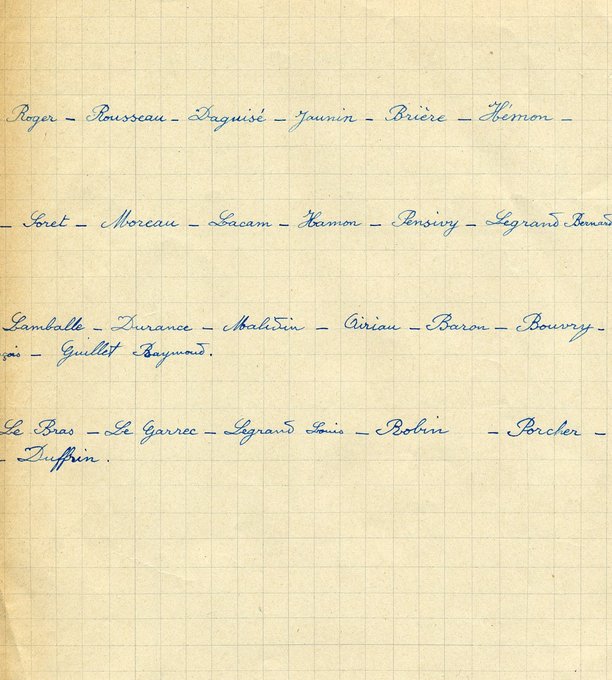 Roger – Rousseau – Daguisé – Jaunin – Brière – Hémon –
– Soret – Moreau – Lacam – Hamon – Pensivy – Legrand Bernard
Lamballe – Durance – Malidin – Airiau – Baron – Bouvry –
çois – Guillet Raymond.
Le Bras – Le Garrec – Legrand Louis – Robin – Porcher –
– Duffrin.